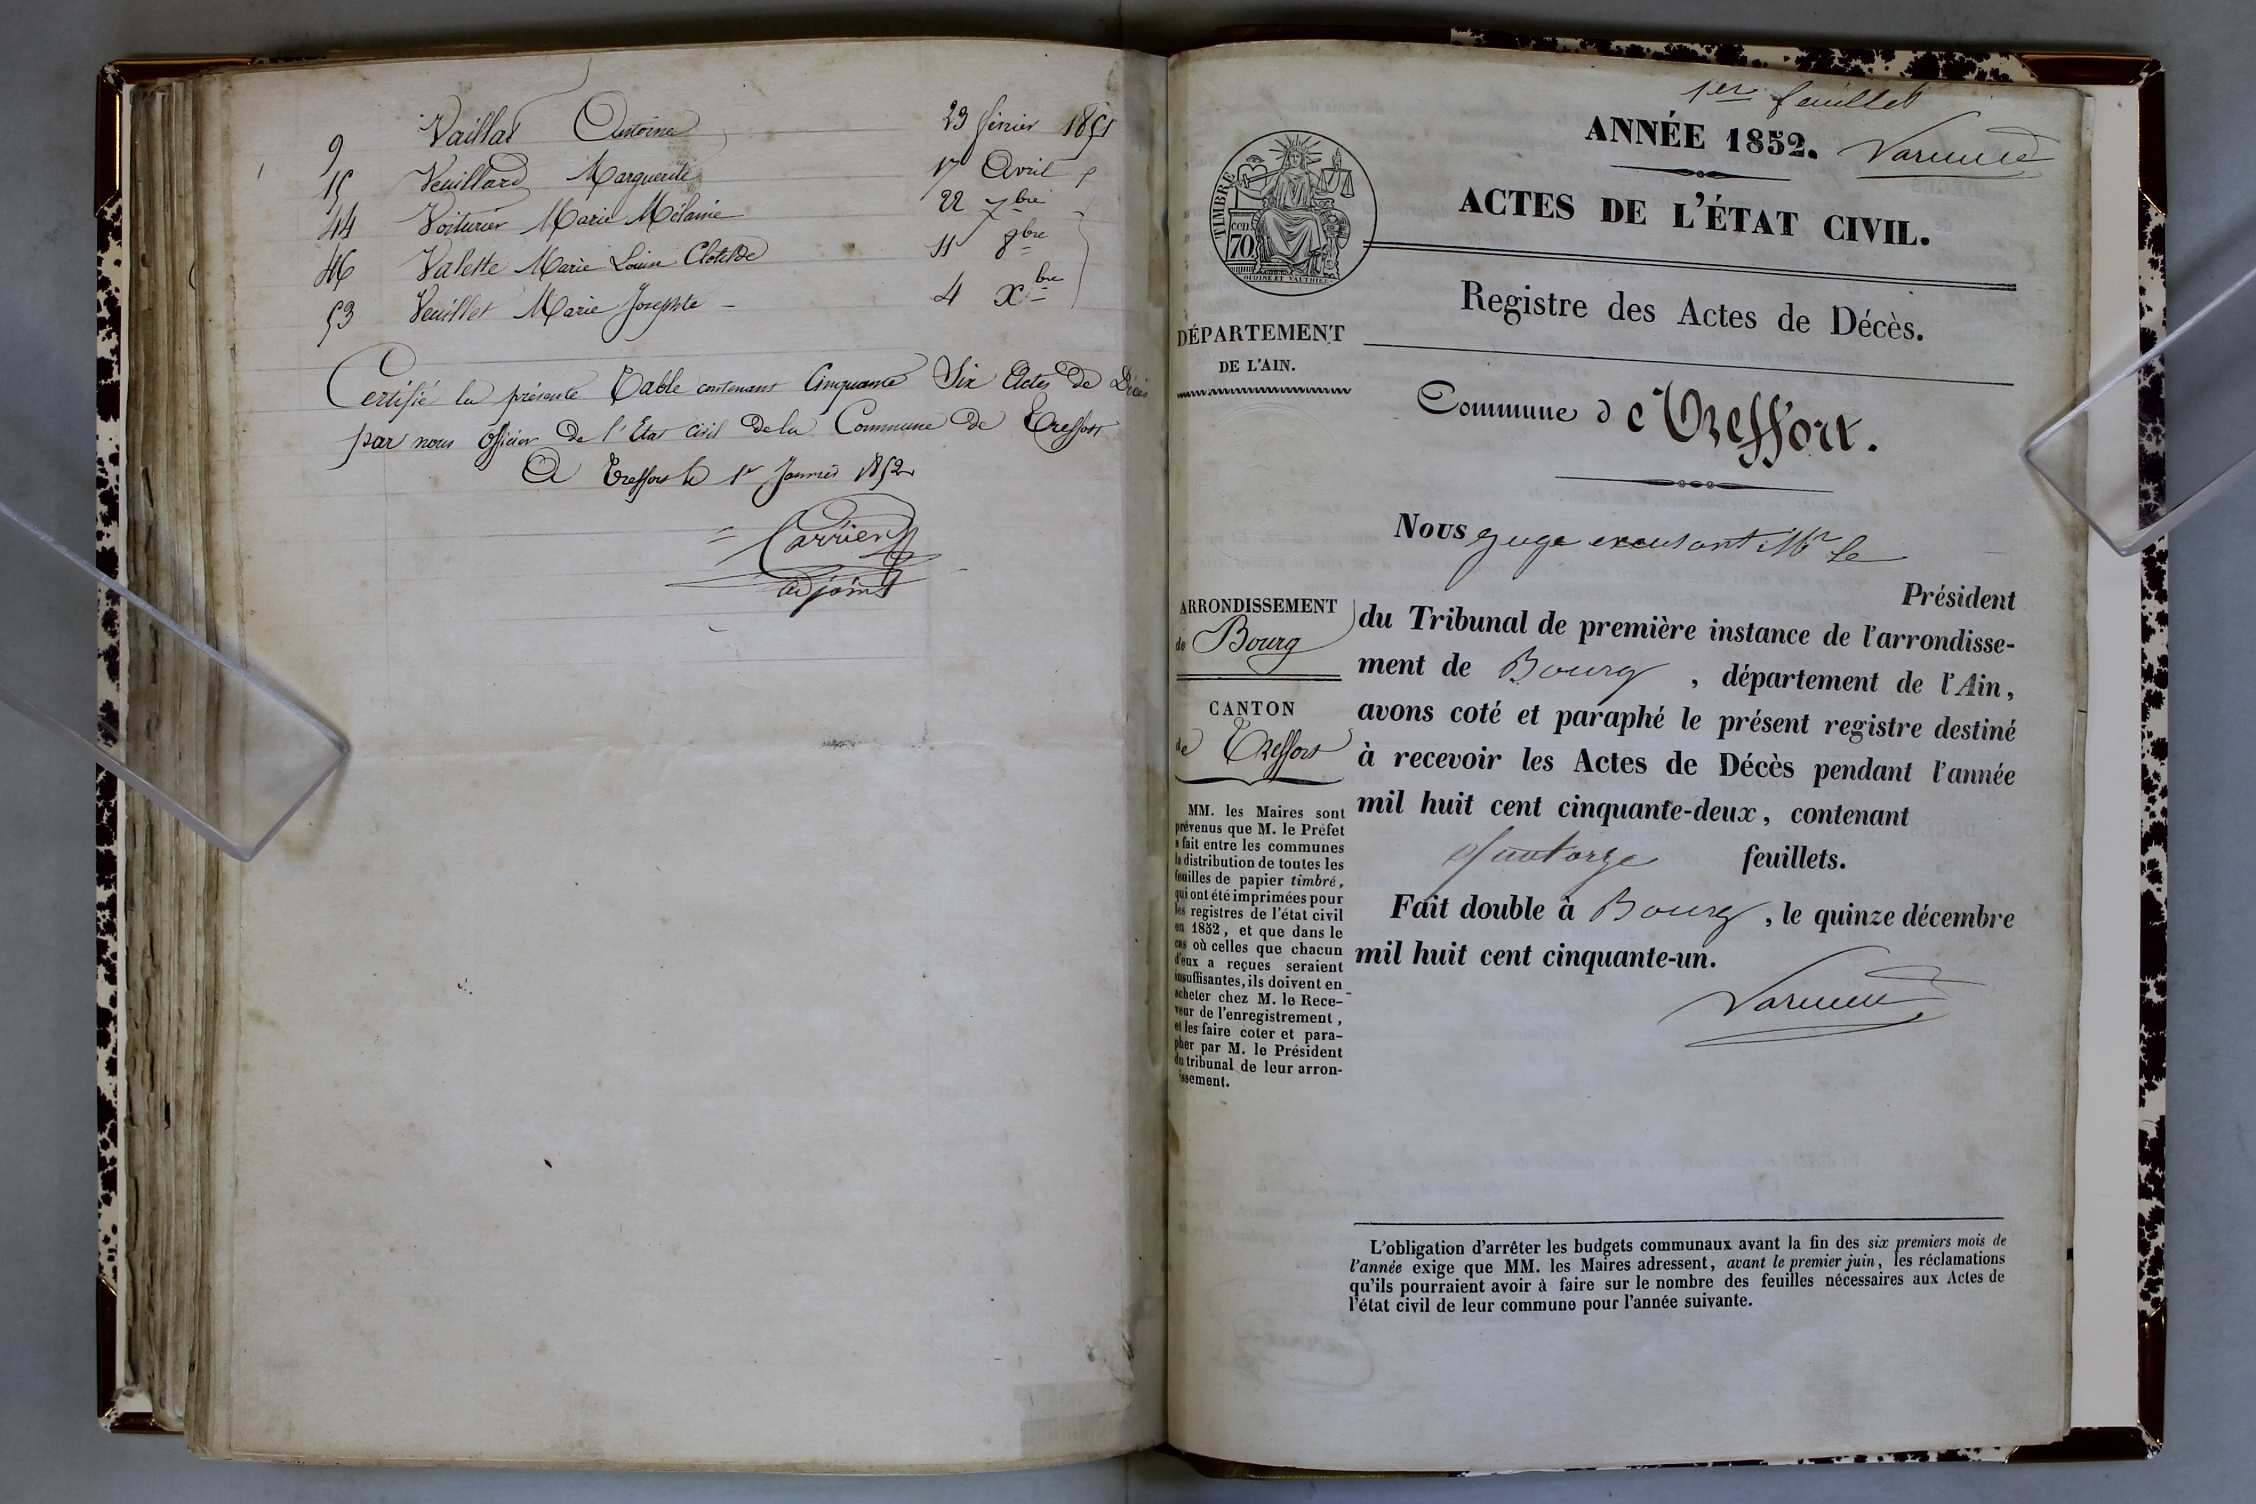 9 Vaillat Antoine 23 février 1851
15 Veuillard Marguerite 17 Avril
44 Voiturier Marie Mélanie 22 7bre
46 Valette Marie Louise Clotilde 11 8bre
53 Veuillet Marie Josephte - 4 Xbre
Certifié la présente Table contenant Cinquante Six Actes de Décès
par nous officier de l'Etat civil de la Commune de Treffort
A Treffort le 1er Janvier 1852
Carrier
adjoint
1er feuillet
ANNÉE 1852.
ACTES DE L'ÉTAT CIVIL.
TIMBRE
70
Registre des Actes de Décès.
DÉPARTEMENT
DE L'AIN.
Commune de Treffort.
Nous juge excusant Mr le
Président
du Tribunal de première instance de l'arrondisse-
ment de Bourg, département de l'Ain,
avons coté et paraphé le présent registre destiné
à recevoir les Actes de Décès pendant l'année
mil huit cent cinquante-deux, contenant
quatorze feuillets.
Fait double à Bourg, le quinze décembre
mil huit cent cinquante-un.
ARRONDISSEMENT
de Bourg
CANTON
de Treffort
MM. les Maires sont
prévenus que M. le Préfet
a fait entre les communes
la distribution de toutes les
feuilles de papier timbré,
qui ont été imprimées pour
les registres de l'état civil
en 1852, et que dans le
cas où celles que chacun
d'eux a reçues seraient
insuffisantes, ils doivent en
acheter chez M. le Rece-
veur de l'enregistrement,
et les faire coter et para-
pher par M. le Président
du tribunal de leur arron-
issement.
L'obligation d'arrêter les budgets communaux avant la fin des six premiers mois de
l'année exige que MM. les Maires adressent, avant le premier juin, les réclamations
qu'ils pourraient avoir à faire sur le nombre des feuilles nécessaires aux Actes de
l'état civil de leur commune pour l'année suivante.